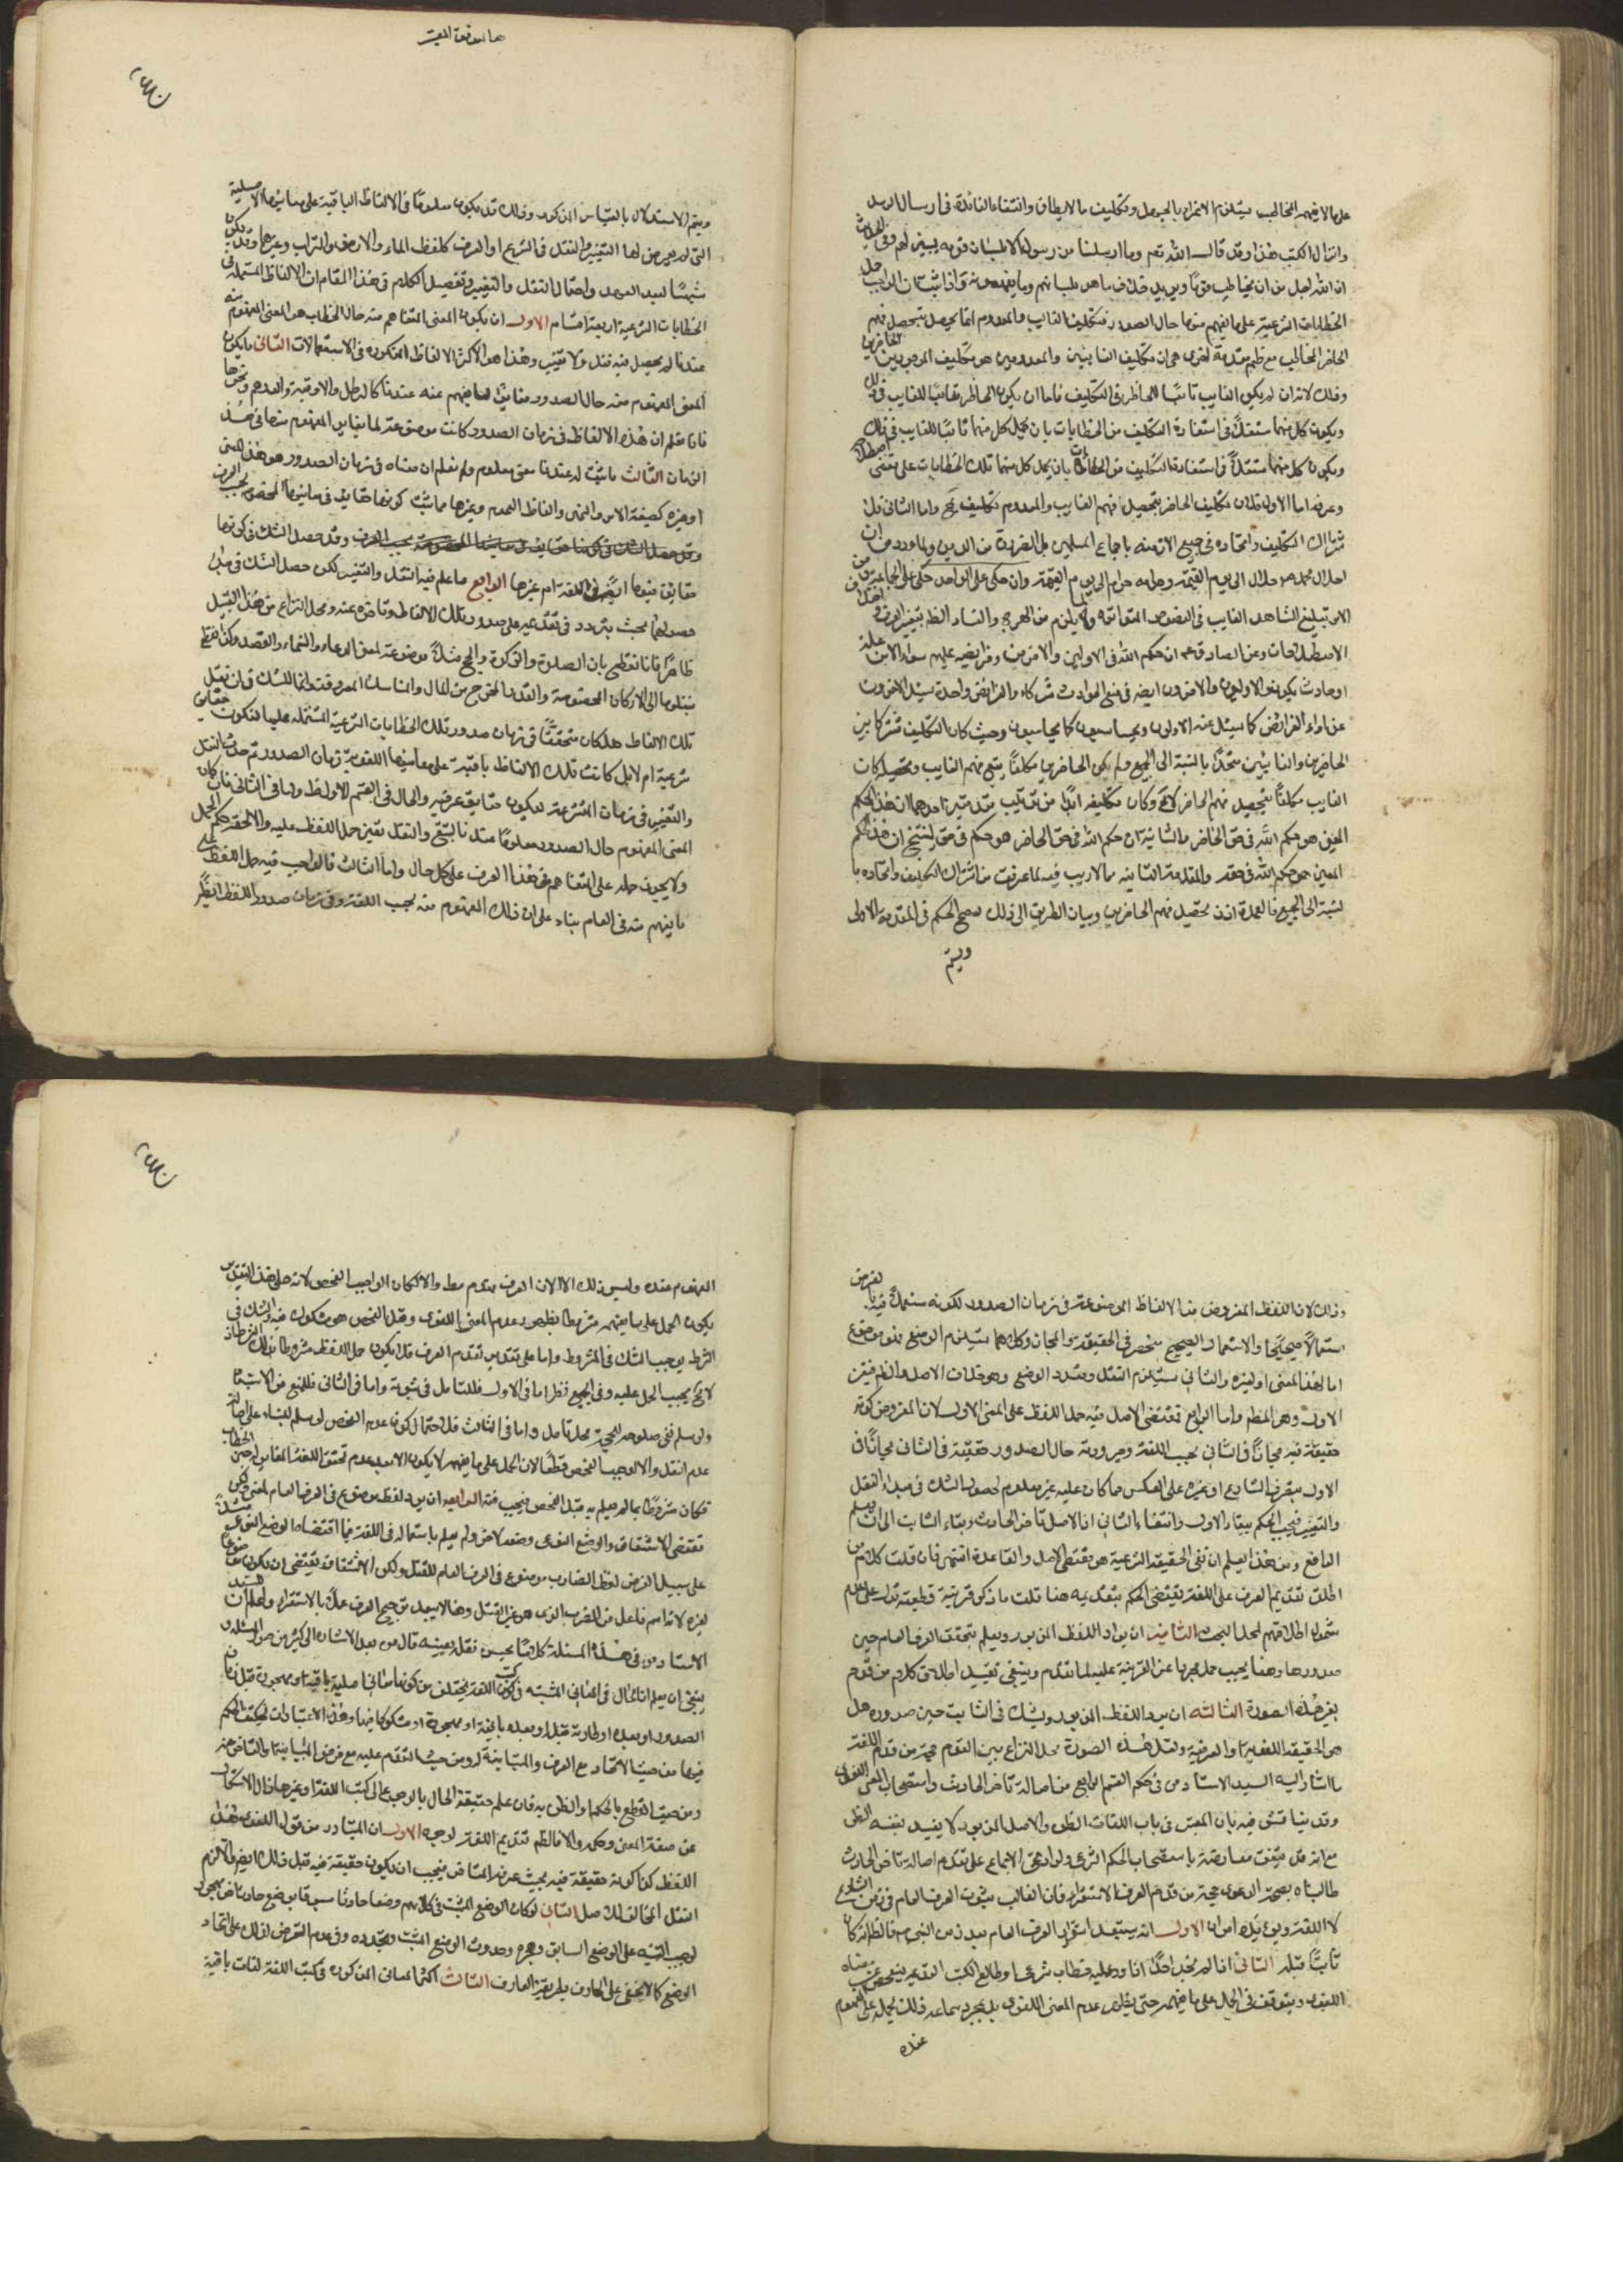 على ما لا يفهمه المخاطب يستلزم الاغراء بالجهل وتكليف ما لا يطاق وانتفاء الفائدة في ارسال الرسل
وانزال الكتب هذا وقد قال الله تعم وما ارسلنا من رسول الا بلسان قومه ليبين لهم وفي الحديث
ان الله اجل من ان يخاطب قومًا ويريد خلاف ما هو بلسانهم وما يفهمونه واذا ثبت ان الواجب حمل
الخطابات الشرعية على ما يفهم منها حال الصدور فتكليف الغايب والمعدوم انما يحصل بتحصيل فهم
الحاضر المخاطب مع ضم مقدمة اخرى هي ان تكليف الغائبين والمعدومين هو تكليف الموجودين الحاضرين
وذلك لانه ان لم يكن الغايب تابعًا للحاضر في التكليف فاما ان يكون الحاضر تابعًا للغايب في ذلك
ويكون كل منهما مستقلًا في استفادة التكليف من الخطابات بان يحمل كل منهما تابعًا للغايب في ذلك
ويكون كل منهما مستقلًا في استفادة التكليف من الخطابات بان يحمل كل منهما تلك الخطابات على مقتضى اصطلاحه
وعرفه اما الاول فلان تكليف الحاضر بتحصيل فهم الغايب والمعدوم تكليف بمح واما الثاني فلان
شتراك التكليف واتحاده في جميع الازمنه باجماع المسلمين بل الضرورة من الدين ولما ورد من ان
حلال محمد ص حلال الى يوم القيمة وحرامه حرام الى يوم القيمة وان حكمي على الواحد حكمي على الجماعة ومن
الامر بتبليغ الشاهد الغايب في النصوص المتواترة ولما يلزم من الهرج والفساد الظم بتغيير العرف واختلاف
الاصطلاحات وعن الصادق ع ان حكم الله في الاولين والاخرين وفرايضه عليهم سواء الا من علة
او حادث يكون والاولون والاخرون ايضه في منع الحوادث شركاء والفرائض واحدة يسئل الاخرون
عن اداء الفرائض كما يسئل عنه الاولون ويحاسبون كما يحاسبون وحيث كان التكليف مشتركا بين
الحاضرين والغائبين متحدًا بالنسبة الى الجميع ولم يكن الحاضرين مكلفًا بتتبع فهم الغايب وتحصيله كان
الغايب مكلفًا بتحصيل فهم الحاضر لا مح وكان تكليفه ابدًا من ترتيب مقدمتين احدهما ان هذا الحكم
المعين هو حكم الله في حق الحاضر والثانية ان حكم الله في حق الحاضر هو حكم في حقي لينتج ان هذا الحكم
المعين هو حكم الله في حقه والمقدمة الثانيه مما لا ريب فيه لما عرفت من اشتراك التكليف واتحاده با
لنسبة الى الجميع فالعمدة اذن تحصيل فهم الحاضرين وبيان الطريق الى ذلك ليصح الحكم في المقدمة الاولى
ويتم
ويتم الاستدلال بالقياس المذكور وذلك قد يكون معلومًا في الالفاظ الباقية على معانيها الاصلية
التي لم يعرض لها التغيير والنقل في الشرع او العرف كلفظ الماء والارض والتراب وغيرها وقد يكون
مشتبهًا لبعد العهد واحتمال النقل والتغيير وتفصيل الكلام في هذا المقام ان الالفاظ المستعملة في
الخطابات الشرعية اربعة اقسام الاول ان يكون المعنى المتفاهم منه حال الخطاب هو المعنى المفهوم منه
عندنا لم يحصل فيه نقل ولا تغيير وهذا هو الاكثر الالفاظ المذكوره في الاستعمالات الثاني ما يكون
المعنى المفهوم منه حال الصدور مغايرًا لما يفهم عنه عندنا كالرطل والاوقية والدرهم ونحوها
فانا نعلم ان هذه الالفاظ في زمان الصدور كانت موضوعة لما يغاير المفهوم منها في هذه
الزمان الثالث ما ثبت له عندنا معنى معلوم ولم نعلم ان معناه في زمان الصدور هو هذا المعنى
او غيره كصيغة الامر والنهي والفاظ العموم وغيرها مما ثبت كونها حقايق في معانيها المخصوصة بحسب العرف
وقد حصل الشك في كونها
حقايق فيها ايضه في اللغة ام غيرها الرابع ما علم فيه النقل والتغيير لكن حصل الشك في مبدأ
حصولهما بحيث يتردد في تقديمه على صدور تلك الالفاظ وتاخره عنه ومحل النزاع من هذا القبيل
ظاهرًا فانا نقطع بان الصلوة والزكوة والحج مثلًا موضوعة لمعنى الدعاء والنماء والقصد وكذا نقطع
بنقلها الى الاركان المخصوصة والقدر المخرج من المال والمناسك المعروفة وانما الشك في ان نقل
تلك الالفاظ هل كان متحققًا في زمان صدور تلك الخطابات الشرعية المشتمله عليها فتكون حقايق
شرعية ام لا بل كانت تلك الالفاظ باقية على معانيها اللغوية زمان الصدور ثم حدث النقل
والتغيير في زمان المتشرعة لتكون حقايق عرفيه والحال في القسم الاول ظ واما في الثاني فان كان
المعنى المفهوم حال الصدور معلومًا عندنا بالتتبع والنقل تعين حمل اللفظ عليه والا لحقه حكم المجمل
ولا يجوز حمله على المتفاهم في هذا العرف على كل حال واما الثالث فالواجب فيه حمل اللفظ على
ما يفهم منه في العام بناء على ان ذلك المفهوم منه بحسب اللغة وفي زمان صدور اللفظ ايضًا
وذلك لان اللفظ المفروض من الالفاظ الموضوعة في زمان الصدور لكونه مستعملًا فيه بالفرض
استعمالًا صحيحًا والاستعمال الصحيح منحصر في الحقيقة والمجاز وكلاهما يستلزم الوضع فهو موضوع
اما لهذا المعنى او لغيره والثاني يستلزم النقل وتعدد الوضع وهو خلاف الاصل والظم فيتعين
الاول وهو المطم واما الرابع فمقتضى الاصل فيه حمل اللفظ على المعنى الاول لان المفروض كونه
حقيقة فيه مجازًا في الثاني بحسب اللغة وصيرورته حال الصدور حقيقة في الثاني مجازًا في
الاول بتصرف الشارع او غيره على العكس مما كان عليه غير معلوم لحصول الشك في مبداء النقل
والتغيير فيجب الحكم ببقاء الاول وانتفاء الثاني اذ الاصل تاخر الحادث وبقاء الثابت الى ان يعلم
الدافع ومن هذا يعلم ان نفى الحقيقة الشرعية هو مقتضى الاصل والقاعدة انتهى فان قلت كلام من
اطلق تقديم العرف على اللغة يقتضي الحكم بتقديمه هنا قلت ما ذكر قرينة قطعية تدل على عدم
شمول اطلاقهم لمحل البحث الثانيه ان يراد اللفظ المزبور ويعلم بتحقق العرف العام حين
صدورها وهنا يجب حمل مجردها عن القرينة عليه لما تقدم وينبغي تقييد اطلاق كلام من قدم
بغير هذه الصورة الثالثه ان يرد اللفظ المزبور ويشك في الثابت حين صدوره هل
هو الحقيقة اللغوية او العرفية ولعل هذه الصورة محل النزاع بين القوم حجة من قدم اللغة
ما اشار اليه السيد الاستاد ره في حكم القسم الرابع من اصالة تاخر الحادث واستصحاب المعنى اللغوى
وقد يناقش فيه بان المعتبر في باب اللغات الظن والاصل المزبور لا يفيد بنفسه الظن
مع انه قد يتفق معارضته باستصحاب الحكم الشرعي ولو ادعى الاجماع على تقديم اصالة تاخر الحادث
طالبناه بصحة الدعوى حجة من قدم العرف الاستقراء فان الغالب ثبوت العرف العام في زمن الشارع
لا اللغة ويويده امران الاول انه يستبعد استقرار العرف العام بعد زمن النبي ص فالظ انه كان
ثابتًا قبله الثاني انا لم نجد احدًا اذا ورد عليه خطاب شرعي وطالع الكتب القديمه يتفحص عن معناه
اللغوى ويتوقف في الحمل على ما يفهمه حتى يظهر عدم المعنى اللغوى بل بمجرد سماعه ذلك يحمله على المفهوم
عنده
المفهوم عنده وليس ذلك الا لان العرف مقدم مط والا لكان الواجب الفحص لانه على هذا التقدير
يكون الحمل على ما يفهمه مشروطا بظهور عدم المعنى اللغوى وقبل الفحص هو مشكوك فيه والشك في
الشرط يوجب الشك في المشروط واما على تقدير تقدم العرف فلا يكون حمل اللفظ مشروطا بذلك الشرط فاذ
لا مح يجب الحمل عليه وفي الجميع نظر اما في الاول فللتامل في ثبوته واما في الثاني فللمنع من الاستبعاد
ولو سلم ففى صلوحه للحجية محل تامل واما في الثالث فلاحتمال كون عدم الفحص لو سلم للبناء على اصالة
عدم النقل والا لوجب الفحص قطعًا لان الحمل على ما يفهمه لا يكون الا بعد عدم تحقق اللغة المغاير حين الخطاب
فكان مشروطًا بما لم يعلم به قبل الفحص فيجب منه الرابعه ان يرد لفظ موضوع في العرف العام لمعنى ولكن
مقتضى الاشتقاق والوضع النوعى وضعه لاخر ولم يعلم باستعماله في اللغة فيما اقتضاه الوضع النوعى مثلًا
على سبيل الفرض لفظ الضارب موضوع في العرف العام للقتل ولكن الاشتقاق يقتضى ان يكون موضوعًا
لغيره لانه اسم فاعل من الضرب الذى هو غير القتل وهنا لا يبعد ترجيح العرف عملًا بالاستقراء واعلم ان للسيد
الاستاد ره في هذه المسئلة كلامًا يحسن نقله بعينه قال ره بعد الاشاره الى كثير من صور المسئله و
ينبغي ان يعلم ان الحال في المعاني المثبته في كتب اللغة يختلف من كونها معاني اصلية باقية او مهجورة قبل زمان
الصدور او بعده او طارئة قبل او بعد باقية او مهجورة او مشكوكا فيها وهذه الاعتبارات يختلف الحكم
فيها من حيث الاتحاد مع العرف والمتباينة له ومن حيث التقدم عليه مع فرض المباينة والتاخر عنه
ومن حيث القطع بالحكم او الظن به فان علم حقيقة الحال بالرجوع الى كتب اللغة او غيرها زال الاشكال
عن صفة المعنى وحكمه والا فالظم تقديم اللغة لوجوه الاول ان المتبادر من قول اللغوى هذا
اللفظ كذا كونه حقيقة فيه بحيث عرفه المتاخر فيجب ان يكون حقيقة فيه قبل ذلك ايضه والا لزم
النقل المخالف للاصل الثاني لو كان الوضع المثبت في كلامهم وضعا حادثًا مسبوقا بوضع حادث اخر مهجور
لوجب التنبيه على الوضع السابق وهجره وحدوث الوضع المثبت وتجدده وفي عدم التعرض لذلك على اتحاد
الوضع كما لا يخفى على العارف بطريقة العارف الثالث اكثر المعاني المذكوره في كتب اللغة لغات باقية